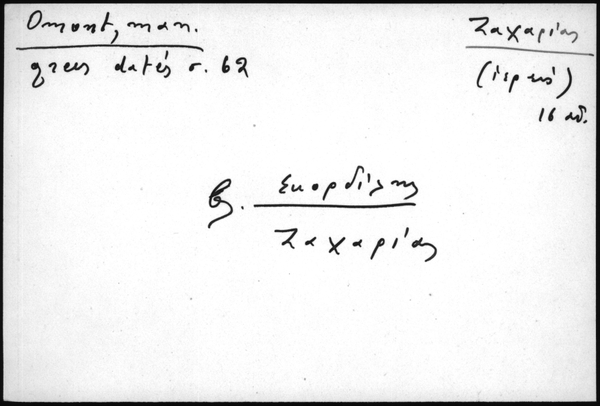 Omont, man.
grecs datés σ. 62
Ζαχαρίας
(ἱερεύς)
16 αἰ.
βλ. Σκορδίλης
Ζαχαρίας